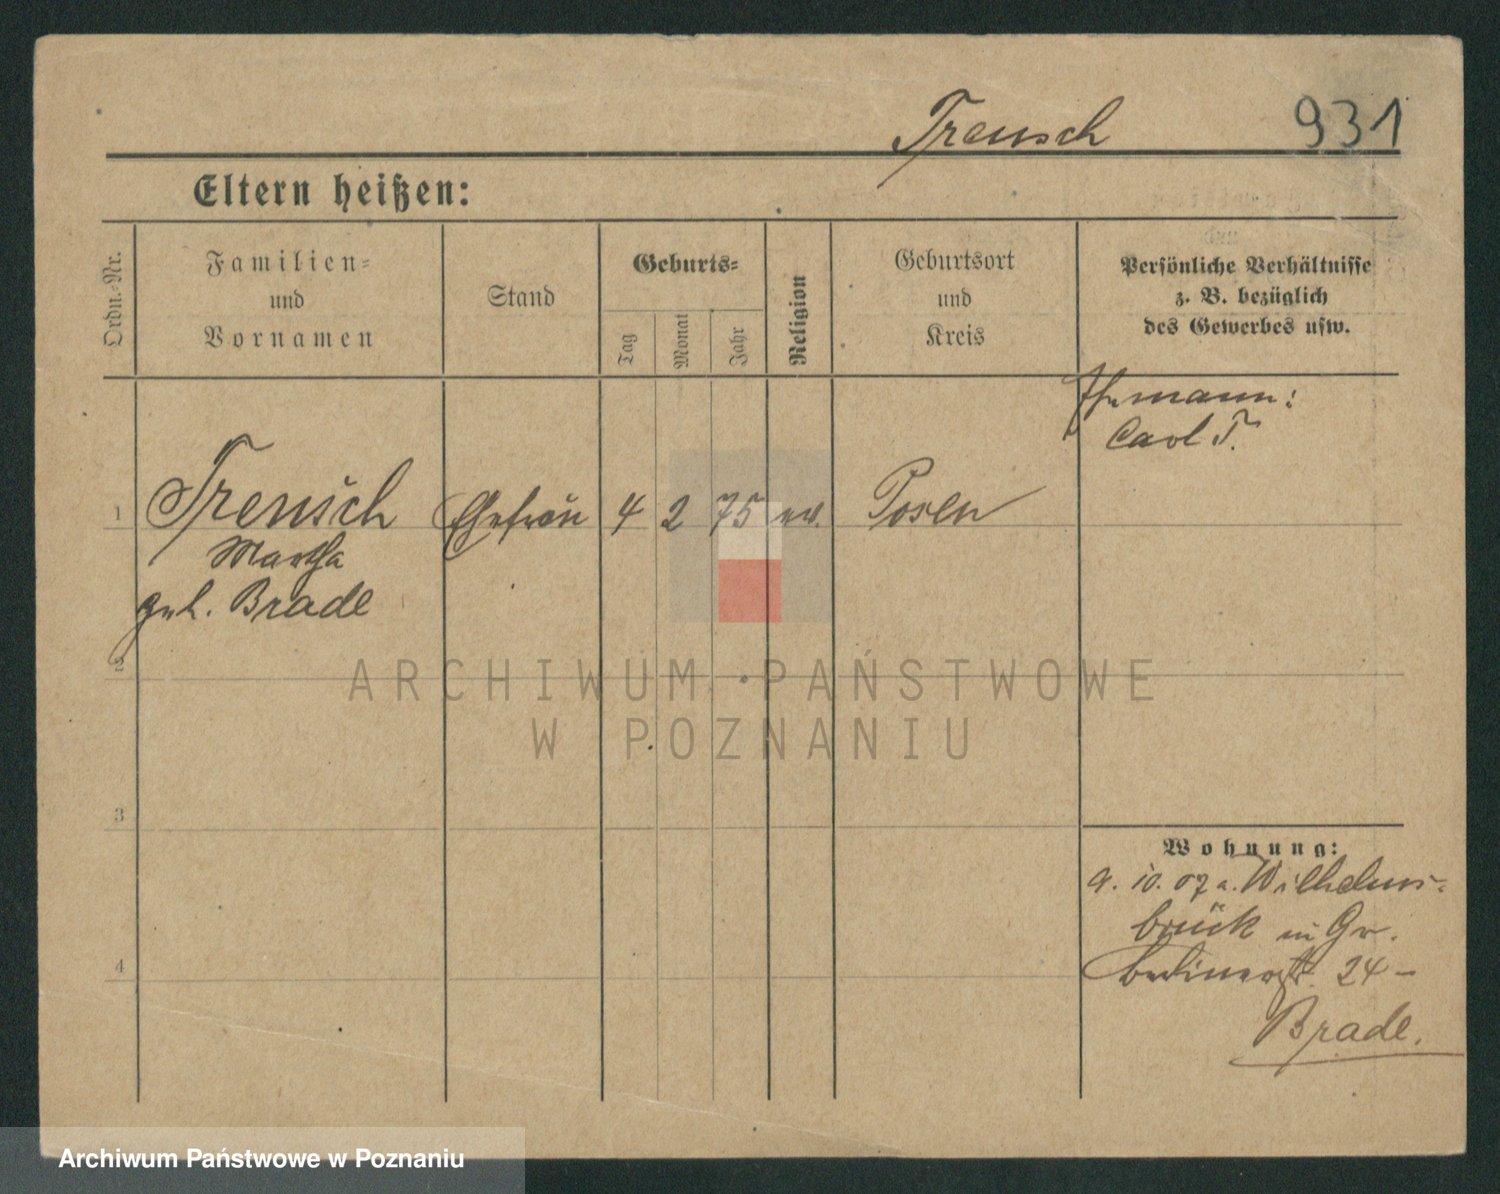 Treusch 931
Eltern heißen:
Ordn.-Nr.
Familien-
und
Vornamen
Stand
Geburts-
Tag
Monat
Jahr
Religion
Geburtsort
und
Kreis
Persönliche Verhältnisse
z. B. bezüglich
des Gewerbes usw.
Ehemann:
Carl T.
1 Treusch Ehefrau 4 2 75 ev. Posen
Martha
geb. Brade
2
ARCHIWUM PAŃSTWOWE
W POZNANIU
3
Wohnung:
9. 10. 07 a. Wilhelms-
brück in Gr.
4
Berlinerstr. 24 -
Brade.
Archiwum Państwowe w Poznaniu